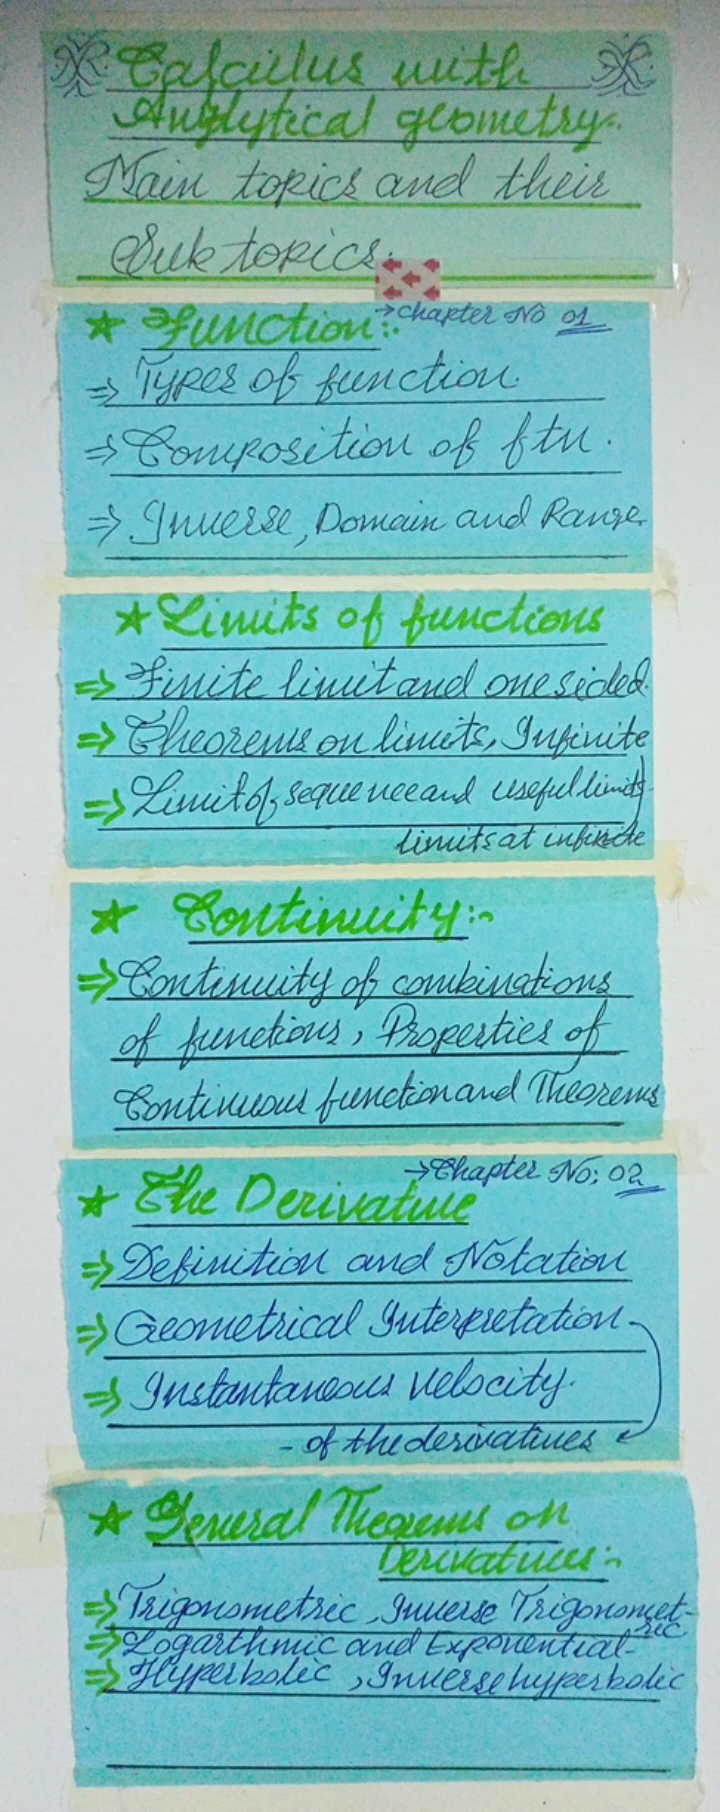 Calculus with
Anglytical geometry:.
Main topics and their
Sub topics:
★ Function:. →chapter No 01
⇒ Types of function.
⇒ Composition of ftn.
⇒ Inverse, Domain and Range.
★ Limits of functions
⇒ Finite limit and one sided.
⇒ Theorems on limits, Infinite
⇒ Limit of sequence and useful limits
limits at infinite
★ Continuity:~
⇒ Continuity of combinations
of functions, Properties of
Continuous function and Theorems
→Chapter No; 02
★ The Derivative
⇒ Definition and Notation
⇒ Geometrical Interpretation
⇒ Instantaneous velocity.
- of the derivatives
★ General Theorems on
Derivatives:~
⇒ Trigonometric, Inverse Trigonomet-
ric
⇒ Logarthmic and Exponential-
⇒ Hyperbolic, Inverse hyperbolic